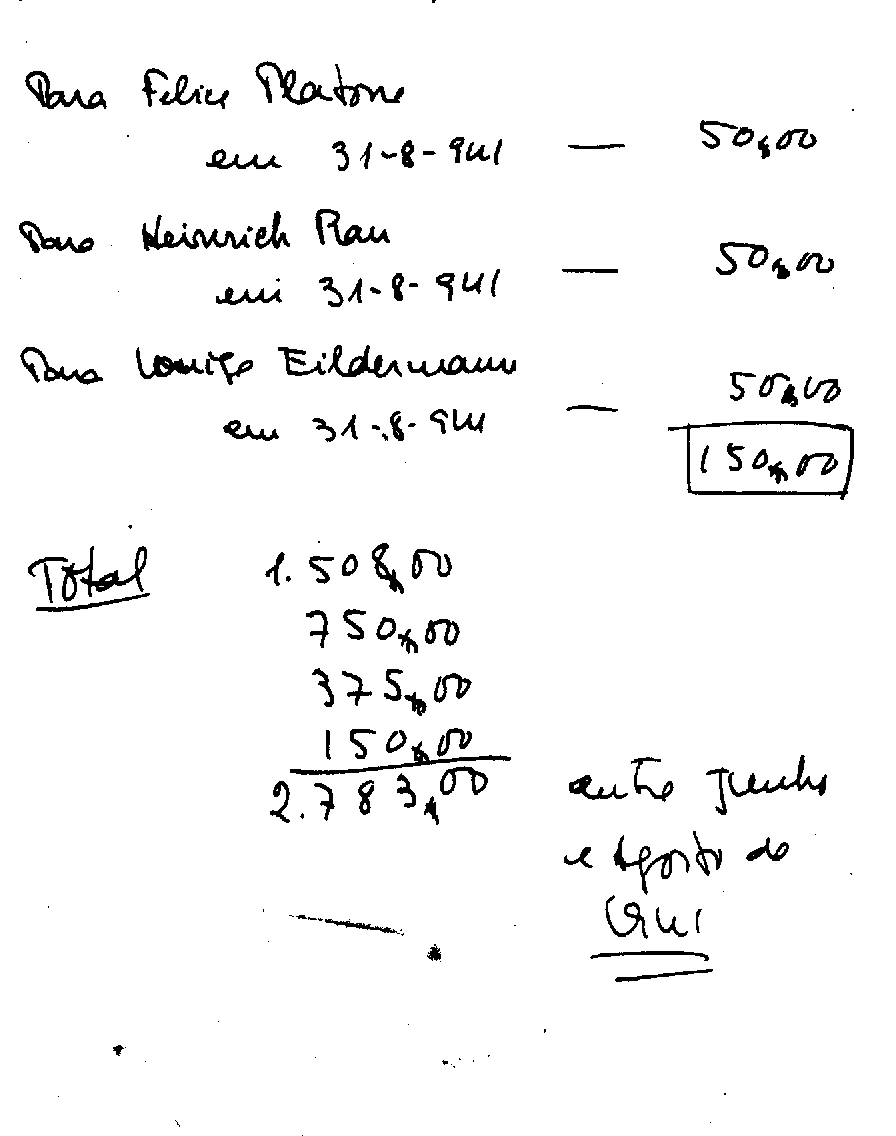 Para Felice Platone
em 31-8-941 — 50,00
Para Heinrich Rau
em 31-8-941 — 50,00
Para Louise Eildermann
em 31-8-941 — 50,00
150,00
Total 1.508,00
750,00
375,00
150,00
2.783,00 entre Junho
e Agosto de
1941